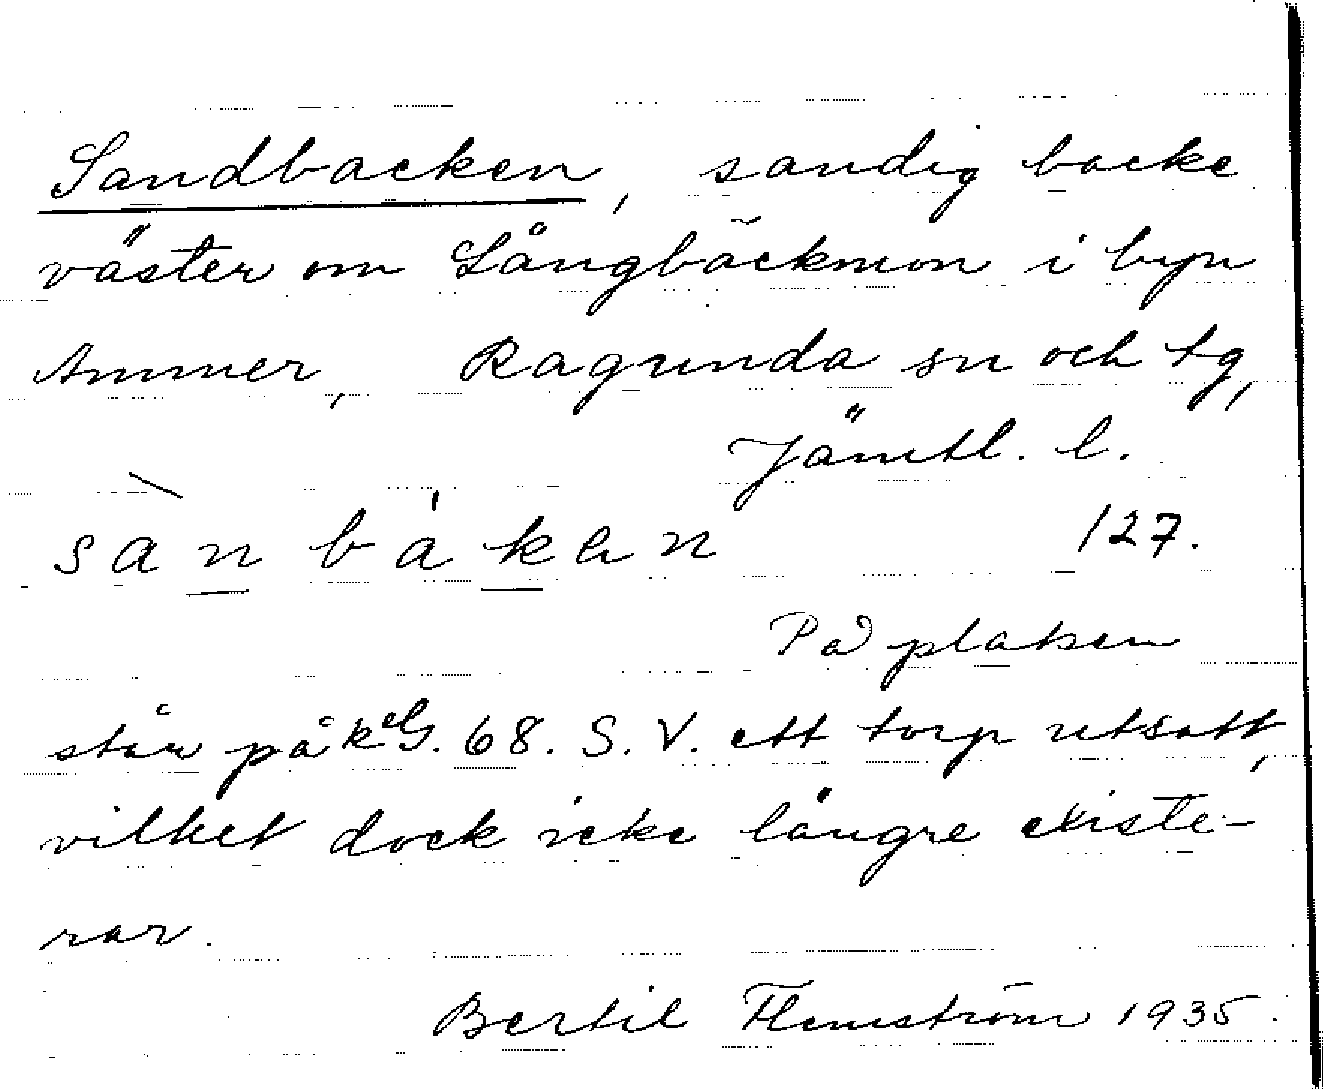 Sandbacken, sandig backe
väster om Långbäckmon i byn
Ammer, Ragunda sn och tg,
Jämtl. l.
sànbákan 127.
På platsen
står på kelG. 68. S. V. ett torp utsatt,
vilket dock icke längre existe-
rar.
Bertil Flemström 1935.